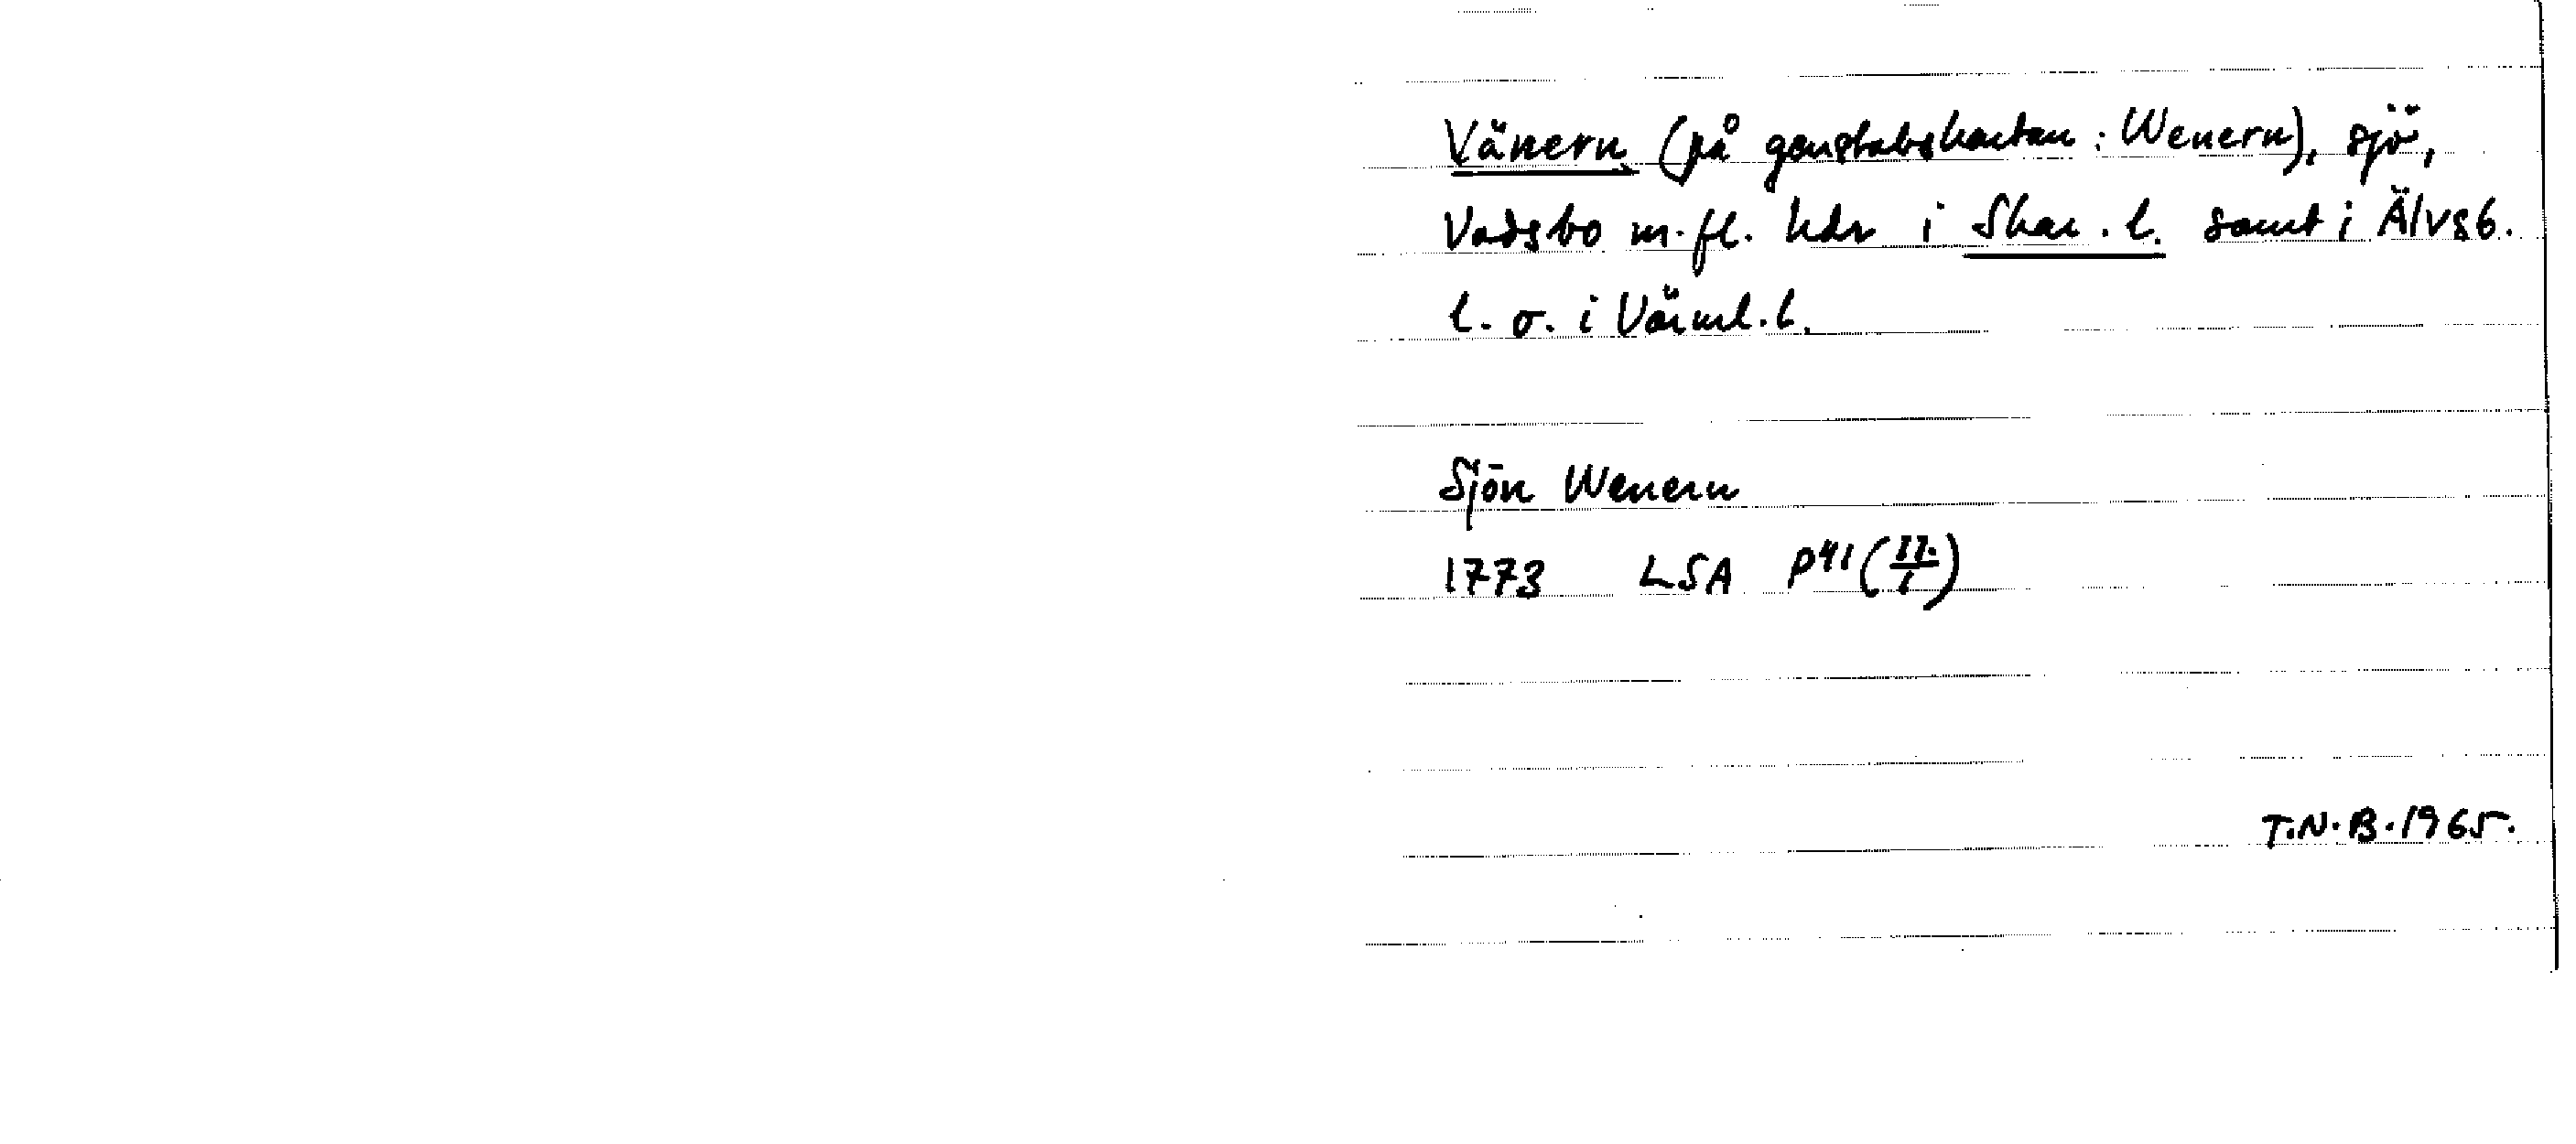 Vänern (på genstabskartan: Wenern), sjö,
Vadsbo m.fl. hdr i Skar. l. samt i Älvsb.
l. o. i Värml. l.
Sjön Wenern
1773 LSA P41 (II./1)
T.N.B. 1965.